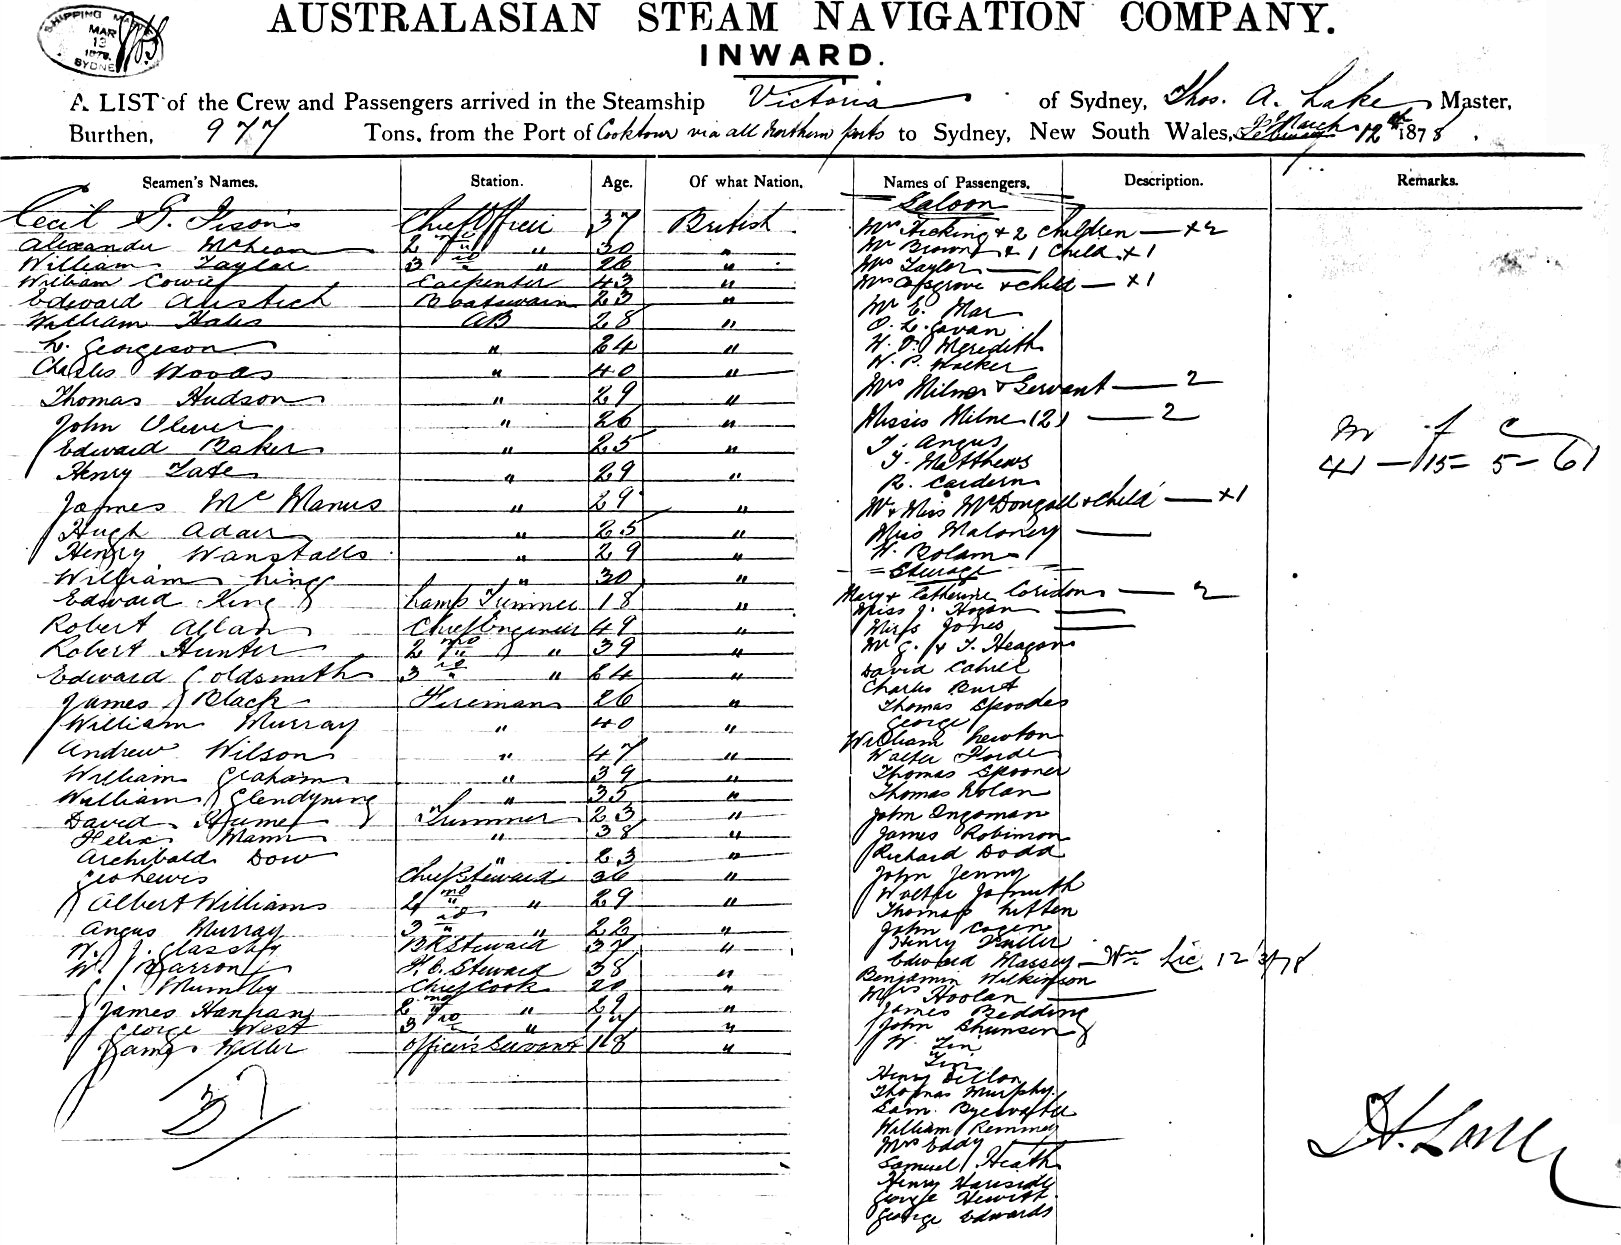 SHIPPING MA
MAR
13
1878
SYDNE
AUSTRALASIAN STEAM NAVIGATION COMPANY.
INWARD.
A LIST of the Crew and Passengers arrived in the Steamship Victoria of Sydney, Thos. A. Lake Master,
Burthen, 977 Tons, from the Port of Cooktown via all Northern ports to Sydney, New South Wales, March 12th 1878.
Seamen's Names. Station. Age. Of what Nation. Names of Passengers. Description. Remarks.
Saloon
Cecil G. Chief Officer 37 British
Alexander McLean 2nd " 30 "
William Taylor 3rd " 26 "
William Cowie Carpenter 43 "
Edward Boatswain 23 "
William Hales AB 28 "
L. Georgeson " 24 "
Charles Woods " 40 "
Thomas Hudson " 29 "
John Oliver " 26 "
Edward Baker " 25 "
Henry Tate " 29 "
James McManus " 29 "
Hugh Adair " 25 "
Henry Wanstalls " 29 "
William " 30 "
Edward King Lamp Trimmer 18 "
Robert Allan Chief Engineer 49 "
Robert Hunter 2nd " 39 "
Edward Goldsmith 3rd " 24 "
James Black Fireman 26 "
William Murray " 40 "
Andrew Wilson " 47 "
William Graham " 39 "
William Glendyning " 35 "
David Hume Trimmer 23 "
Felix Mann " 38 "
Archibald Dow " 23 "
Geo Lewis Chief Steward 36 "
Albert Williams 2nd " 29 "
Angus Murray 3rd " 22 "
W. J. Glassby BK Steward 37 "
W. Barron F.C. Steward 38 "
Mumby Chief Cook 20 "
James Hanrahan 2nd " 29 "
George West 3rd " 17 "
James Weller Officers Servant 18 "
37
Mrs Hicking & 2 Children — x2
Mr Brown & 1 Child x1
Mrs Taylor —
Mrs Cosgrove & Child — x1
Mr E. Mar
O. L. Gavan
W. O. Meredith
W. P. Walker
Mrs Milner & Servant — 2
Misses Milne (2) — 2
T. Angus
T. Matthews
R. Cardern
Mr & Miss McDongall & Child — x1
Miss Maloney —
W. Bolam
= Steerage =
Mary & Catherine Coridon — 2
Miss J. Hogan —
Miss Jones —
Mr C. & T. Heagan
David Cahill
Charles Burt
Thomas Spoodes
George
William Newton
Walter Forde
Thomas Spooner
Thomas Nolan
John Ingoman
James Robinson
Richard Dodd
John Jenny
Walter Jo Smith
Thomas Litten
John Cogin
Henry Fuller
Edward Massey — Wm Lic. 12/3/78
Benjamin Wilkinson
Mrs Hoolan —
James Redding
John Shunsen
W. Lin
Tin
Henry Dillon
Thomas Murphy
Sam. Byewater
William Remmey
Mrs Eddy —
Samuel Heath
Henry Hareside
George Hewitt
George Edwards
M f C
41 — 15 = 5 — 61